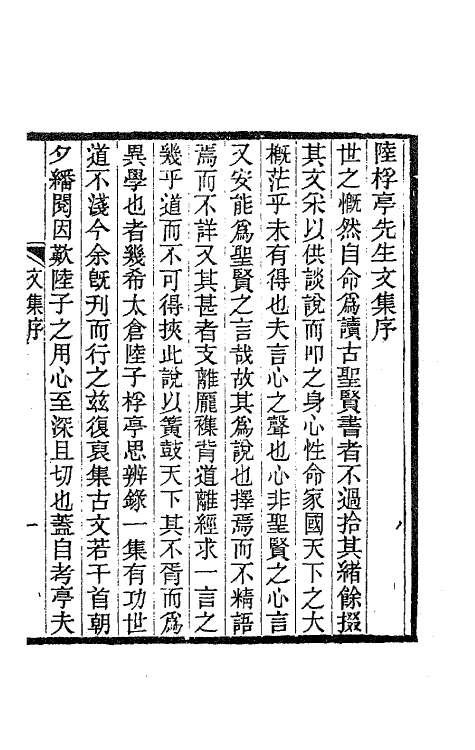 陸桴亭先生文集序
世之慨然自命爲讀古聖賢書者不過拾其緒餘掇
其文采以供談說而叩之身心性命家國天下之大
概茫乎未有得也夫言心之聲也心非聖賢之心言
又安能爲聖賢之言哉故其爲說也擇焉而不精語
焉而不詳又其甚者支離龎襍背道離經求一言之
幾乎道而不可得挾此說以簧鼓天下其不胥而爲
異學也者幾希太倉陸子桴亭思辨錄一集有功世
道不淺今余旣刋而行之兹復裒集古文若干首朝
夕繙閱因歎陸子之用心至深且切也蓋自考亭夫
文集序
一